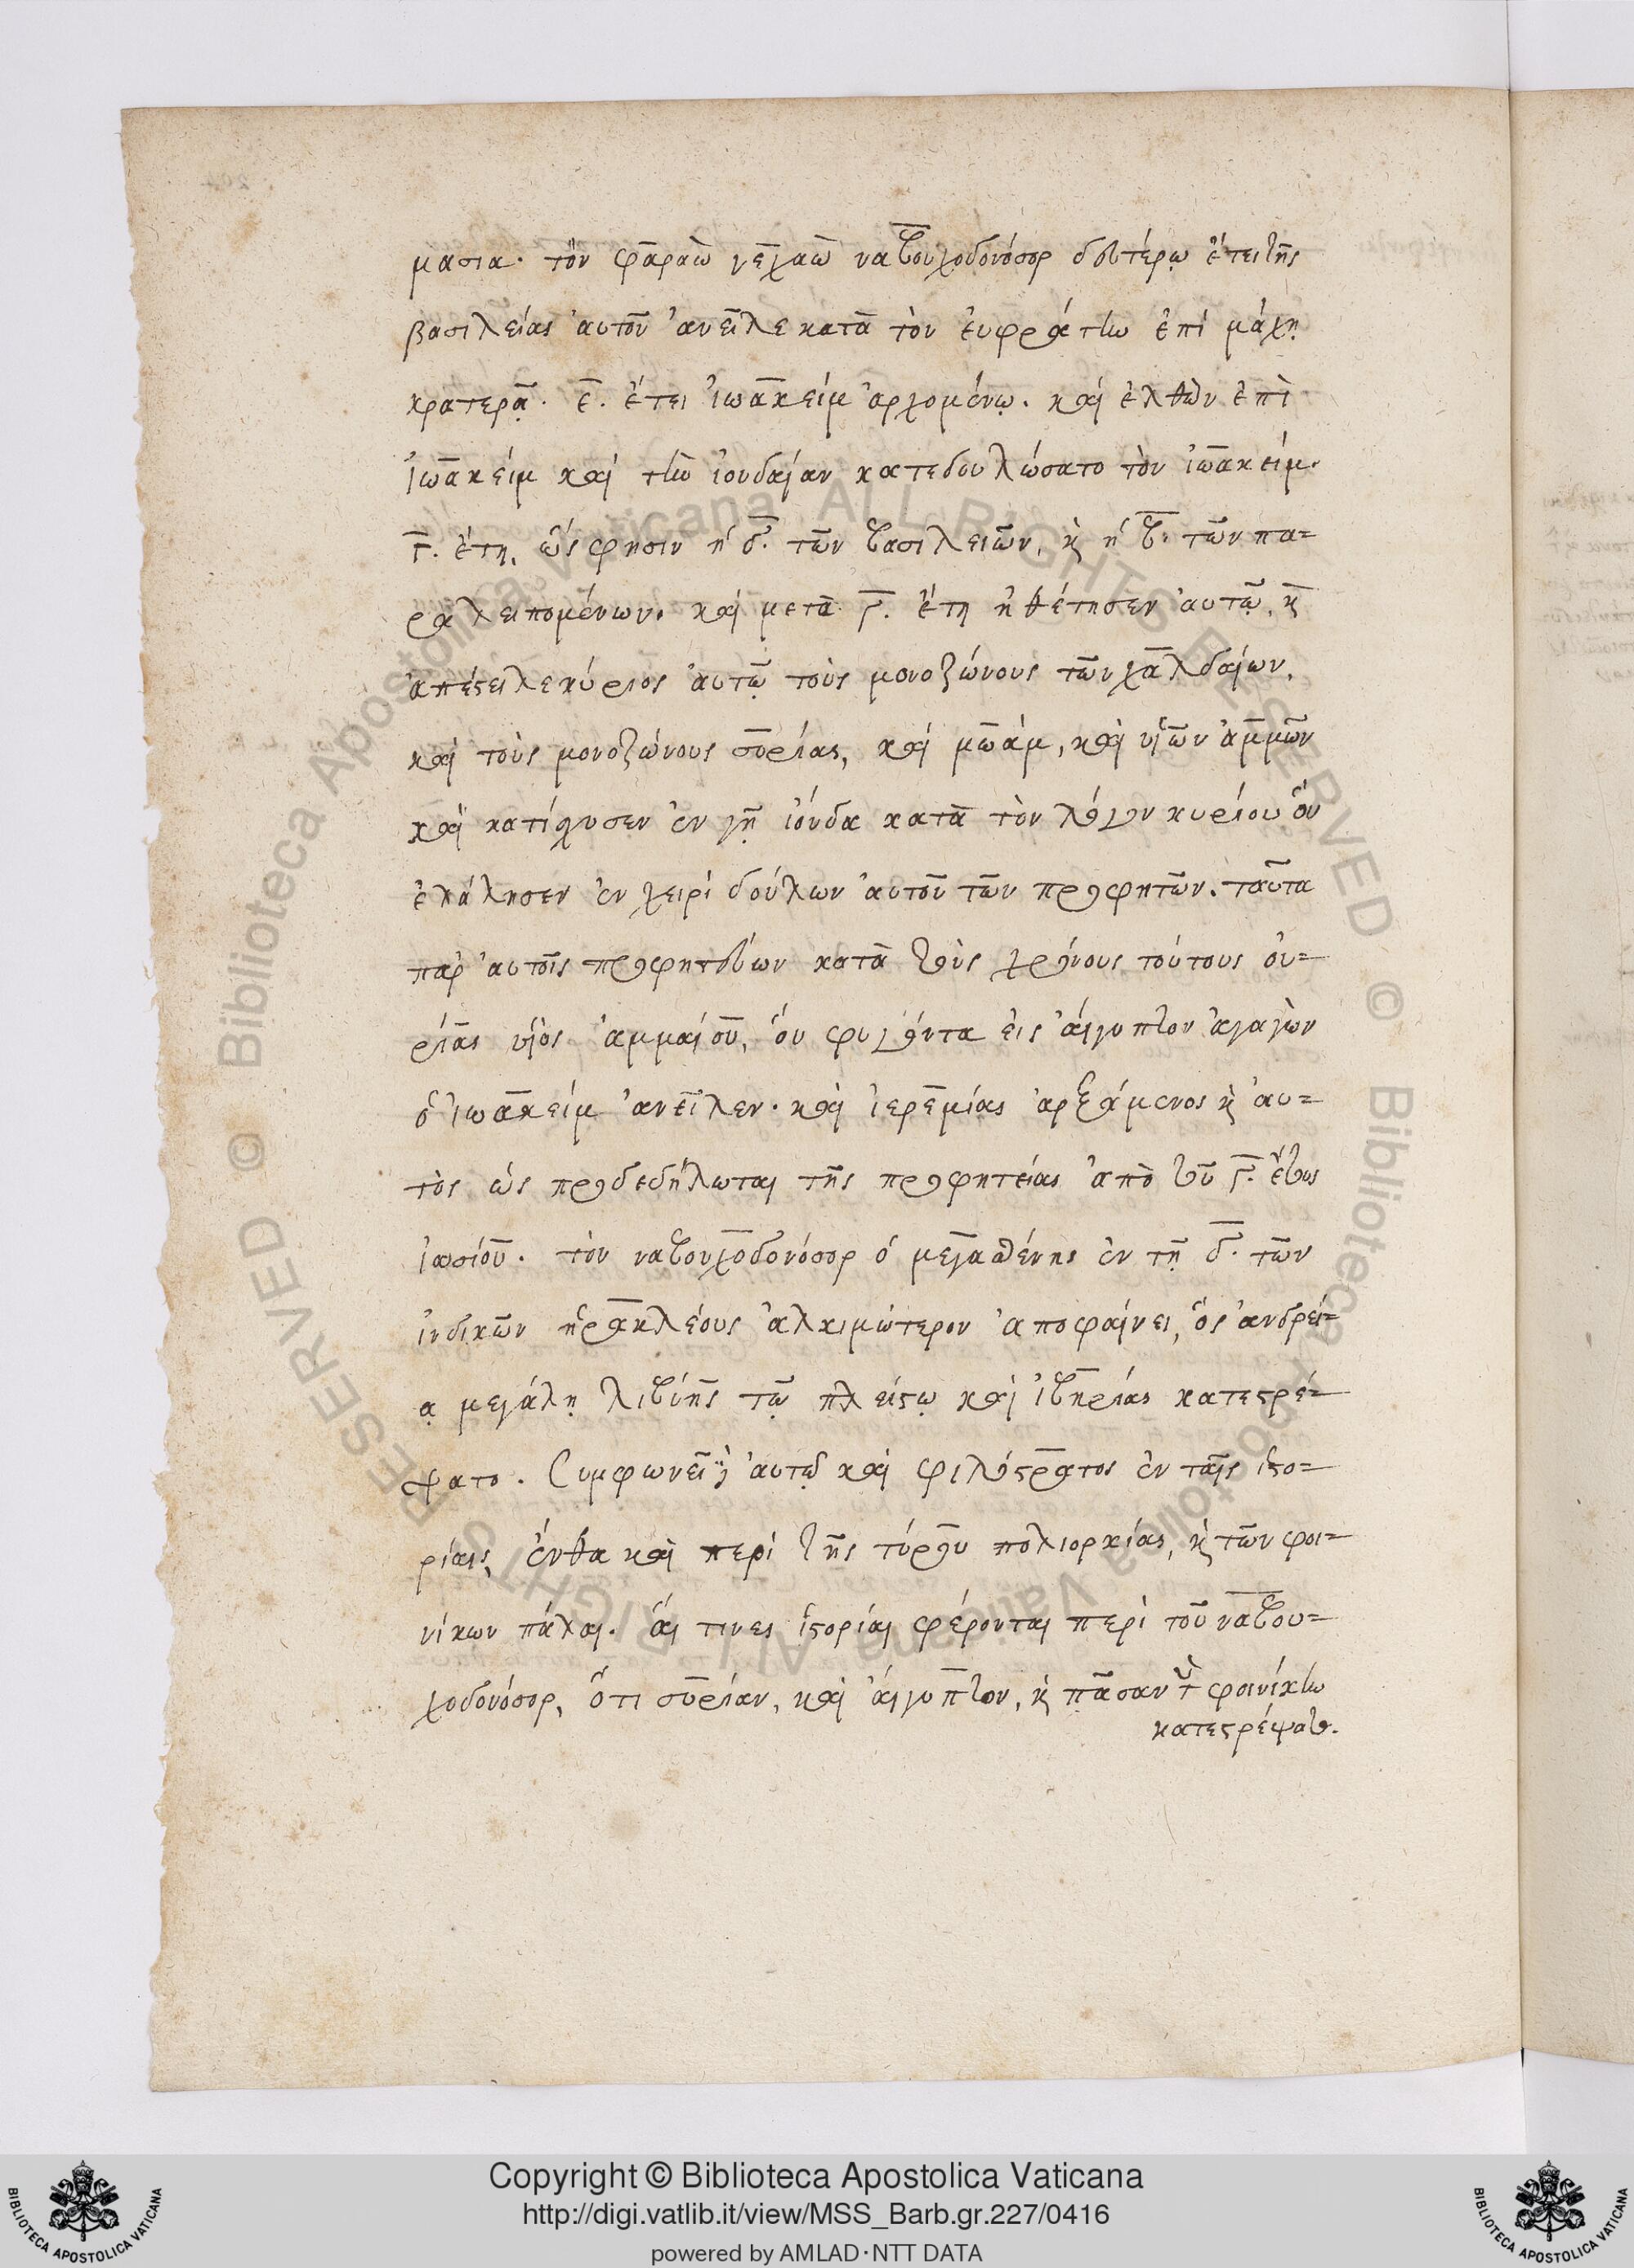 μασια· τὸν φαραὼ νεχαὼ ναβουχοδονόσορ δευτέρῳ ἔτει τῆς
βασιλείας αὐτοῦ ἀνεῖλε κατὰ τὸν ἐυφράτην ἐπὶ μάχῃ
κρατερᾷ· ε. ἔτει ἰωακεὶμ ἀρχομένῳ. καὶ ἐλθὼν ἐπὶ
ἰωακεὶμ καὶ τὴν ἰουδαίαν κατεδουλώσατο τὸν ἰωακείμ.
γ. ἔτη, ὥς φησιν ἡ δ. τῶν βασιλειῶν, κ ἡ β. τῶν πα=
ραλειπομένων. καὶ μετὰ γ. ἔτη ἠθέτησεν αὐτῷ, κ
ἀπέστειλε κύριος αὐτῷ τοὺς μονοζώνους τῶν χαλδαίων,
καὶ τοὺς μονοζώνους συρίας, καὶ μωὰμ, καὶ υἱῶν ἀμμῶν
καὶ κατίσχυσεν ἐν γῇ ἰούδα κατὰ τὸν λόγον κυρίου ὃν
ἐλάλησεν ἐν χειρὶ δούλων αὐτοῦ τῶν προφητῶν. ταῦτα
παρ' αὐτοῖς προφητεύων κατὰ τοὺς χρόνους τούτους οὐ=
ρίας υἱὸς ἀμμαίου, ὃν φυγόντα εἰς ἄιγυπτον ἀγαγὼν
ὁ ἰωακεὶμ ἀνεῖλεν· καὶ ἱερεμίας ἀρξάμενος κ αὐ=
τὸς ὡς προδεδήλωται τῆς προφητείας ἀπὸ τοῦ γ. ἔτους
ἰωσίου. τὸν ναβουχοδονόσορ ὁ μεγασθένης ἐν τῇ δ. τῶν
ἰνδικῶν ἡρακλέους ἀλκιμώτερον ἀποφαίνει, ὃς ἀνδρεί=
ᾳ μεγάλῃ λιβύης τῷ πλείστῳ καὶ ἰβηρίας κατεστρέ=
ψατο. Συμφωνεῖ αὐτῷ καὶ φιλόστρατος ἐν ταῖς ἱστο=
ρίαις, ἔνθα καὶ περὶ τῆς τύρου πολιορκίας, κ τῶν φοι=
νίκων πάλαι. ἅι τινες ἱστορίαι φέρονται περὶ τοῦ ναβου=
χοδονόσορ, ὅτι συρίαν, καὶ ἄιγυπτον, κ πᾶσαν τὴν φοινίκην
κατεστρέψατο.
Copyright © Biblioteca Apostolica Vaticana
http://digi.vatlib.it/view/MSS_Barb.gr.227/0416
powered by AMLAD·NTT DATA